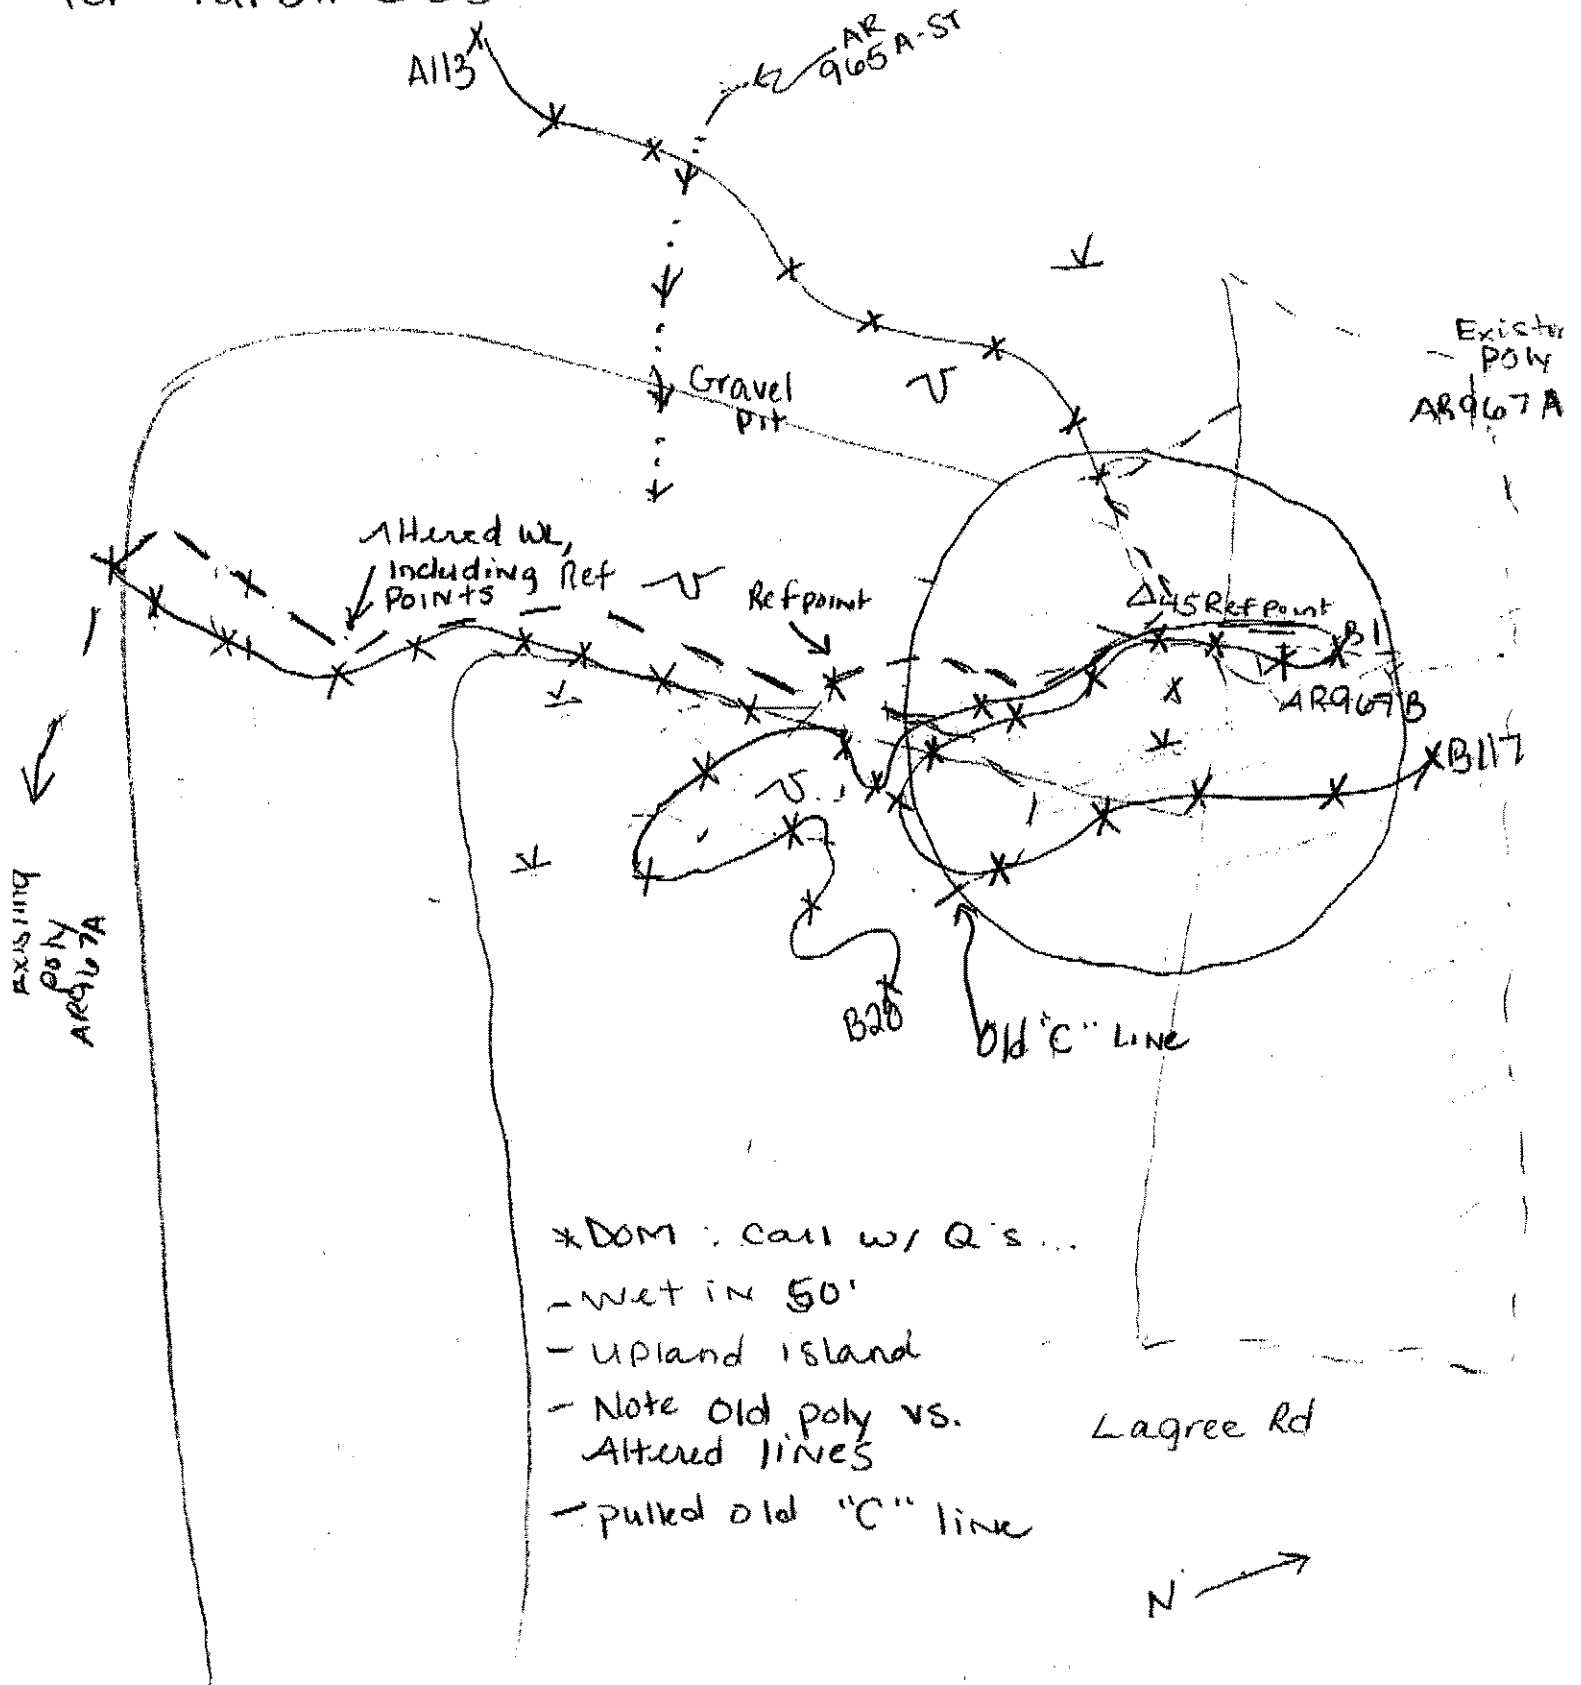 A113
AR
965A-ST
Gravel
pit
Existin
poly
AR967A
Altered WL,
Including Ref
Points
Refpoint
Δ45 Refpoint
B1
AR967B
B117
Existing
poly
AR967A
B20
Old "C" LINE
*DOM: Call w/ Q's...
- Wet in 50'
- Upland island
- Note Old poly vs.
Altered lines
- pulled old "C" line
Lagree Rd
N